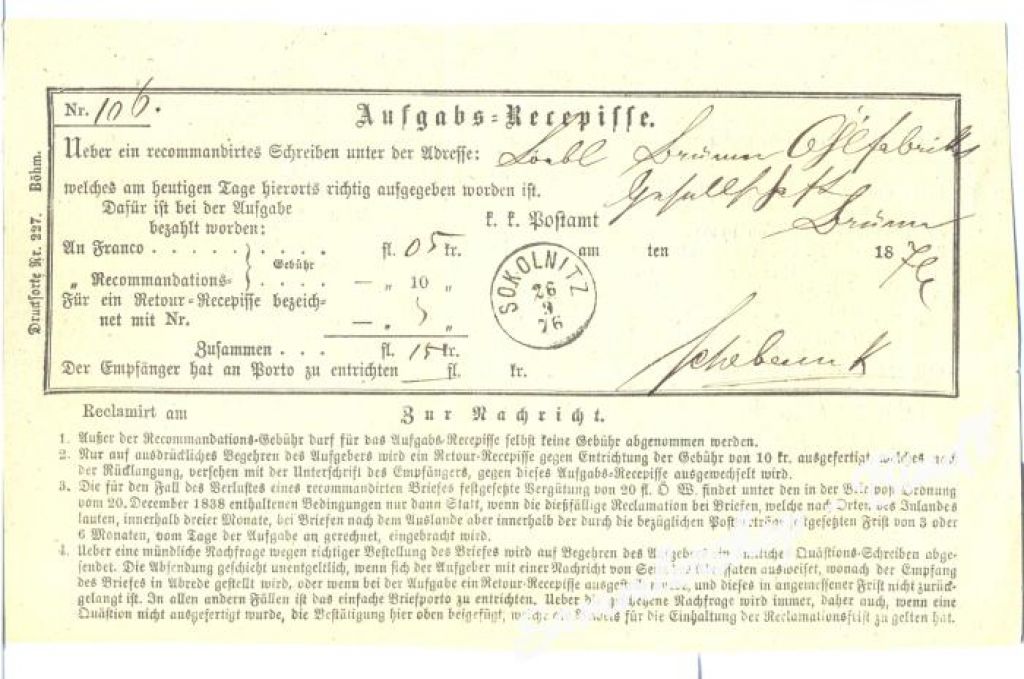 Nr. 106.
Aufgabs-Recepisse.
Ueber ein recommandirtes Schreiben unter der Adresse: Loebl Brünner Öhlfabriks
welches am heutigen Tage hierorts richtig aufgegeben worden ist. Gesellschaft
Dafür ist bei der Aufgabe
bezahlt worden:
k. k. Postamt Brünn
An Franco . . . . . . . . . fl. 05 kr. am ten 1876
Gebühr
„ Recommandations- . . . . — „ 10 „
Für ein Retour-Recepisse bezeich-
net mit Nr. — „ „
SOKOLNITZ
26
9
76
Zusammen . . . fl. 15 kr.
Der Empfänger hat an Porto zu entrichten fl. kr.
Drucksorte Nr. 227. Böhm.
Reclamirt am Zur Nachricht.
1. Außer der Recommandations-Gebühr darf für das Aufgabs-Recepisse selbst keine Gebühr abgenommen werden.
2. Nur auf ausdrückliches Begehren des Aufgebers wird ein Retour-Recepisse gegen Entrichtung der Gebühr von 10 kr. ausgefertigt, welches nach
der Rücklangung, versehen mit der Unterschrift des Empfängers, gegen dieses Aufgabs-Recepisse ausgewechselt wird.
3. Die für den Fall des Verlustes eines recommandirten Briefes festgesetzte Vergütung von 20 fl. Ö W. findet unter den in der
vom 20. December 1838 enthaltenen Bedingungen nur dann Statt, wenn die dießfällige Reclamation bei Briefen, welche nach Orten des Inlandes
lauten, innerhalb dreier Monate, bei Briefen nach dem Auslande aber innerhalb der durch die bezüglichen Postverträge festgesetzten Frist von 3 oder
6 Monaten, vom Tage der Aufgabe an gerechnet, eingebracht wird.
4. Ueber eine mündliche Nachfrage wegen richtiger Bestellung des Briefes wird auf Begehren des Aufgebers ein amtliches Quästions-Schreiben abge-
sendet. Die Absendung geschieht unentgeltlich, wenn sich der Aufgeber mit einer Nachricht von Seite des Adressaten ausweiset, wonach der Empfang
des Briefes in Abrede gestellt wird, oder wenn bei der Aufgabe ein Retour-Recepisse ausgestellt wurde, und dieses in angemessener Frist nicht zurück-
gelangt ist. In allen andern Fällen ist das einfache Briefporto zu entrichten. Ueber die geschehene Nachfrage wird immer, daher auch, wenn eine
Quästion nicht ausgefertigt wurde, die Bestätigung hier oben beigefügt, welche als Beweis für die Einhaltung der Reclamationsfrist zu gelten hat.